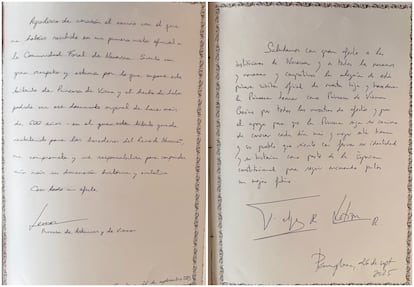 Agradezco de corazón el cariño con el que
me habéis recibido en mi primera visita oficial a
la Comunidad Foral de Navarra. Siento un
gran respeto y estima por lo que supone este
título de Princesa de Viana y el hecho de haber
podido ver ese documento original de hace más
de 600 años - en el que este título quedó
establecido para los herederos del Reino de Navarra -
me compromete y me responsabiliza para comprender
aún más su dimensión histórica y
Con todo mi afecto,
Leonor
Princesa de Asturias y de Viana
26 de septiembre 2025
Saludamos con gran afecto a las
instituciones de Navarra y a todos los navarros
y navarras y compartimos la alegría de esta
primera visita oficial de nuestra hija y heredera
la Princesa Leonor como Princesa de Viana.
Gracias por todas las muestras de afecto y por
el apoyo para que la Princesa siga su camino
de conocer cada día más y mejor esta tierra
y su pueblo que siente con fuerza su identidad
y su historia como parte de la España
constitucional, para seguir avanzando juntos
un mejor futuro.
Felipe R
Letizia R
Pamplona, 26 de sept
2025